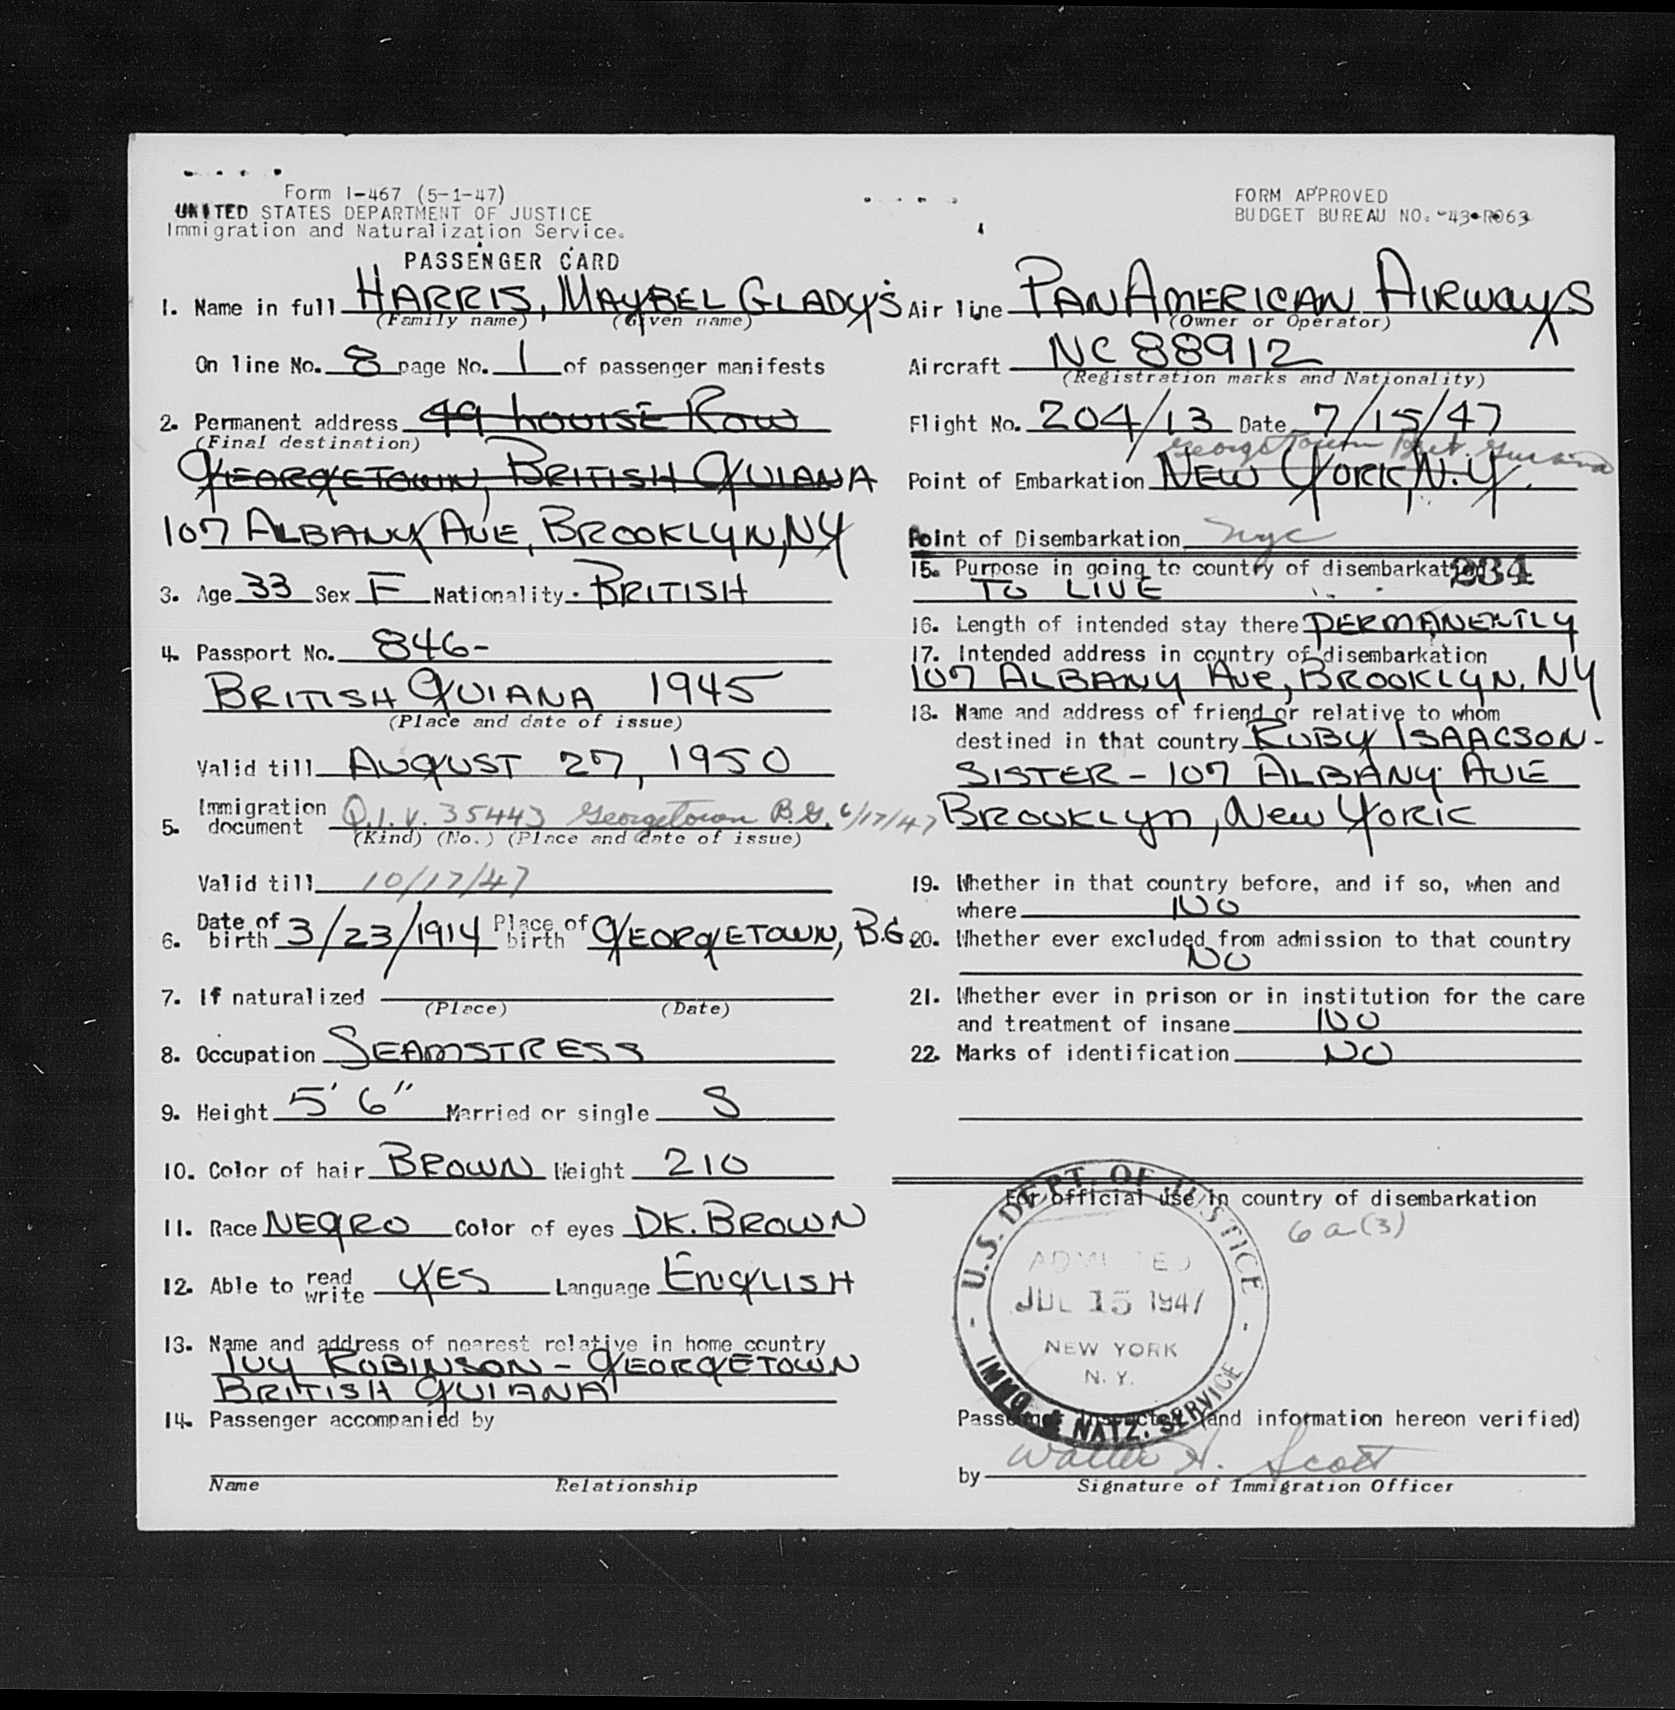 Form I-467 (5-1-47)
UNITED STATES DEPARTMENT OF JUSTICE
Immigration and Naturalization Service.
PASSENGER CARD
FORM APPROVED
BUDGET BUREAU NO. 43-R063
1. Name in full HARRIS, MAYBEL GLADYS
(Family name) (Given name)
On line No. 8 page No. 1 of passenger manifests
2. Permanent address 49 LOUISE ROW
(Final destination)
GEORGETOWN, BRITISH GUIANA
107 ALBANY AVE, BROOKLYN, NY
3. Age 33 Sex F Nationality BRITISH
4. Passport No. 846-
BRITISH GUIANA 1945
(Place and date of issue)
Valid till AUGUST 27, 1950
5. Immigration document Q.I.V. 35443 Georgetown B.G. 6/17/47
(Kind) (No.) (Place and date of issue)
Valid till 10/17/47
6. Date of birth 3/23/1914 Place of birth GEORGETOWN, B.G
7. If naturalized
(Place) (Date)
8. Occupation SEAMSTRESS
9. Height 5' 6" Married or single S
10. Color of hair BROWN Weight 210
11. Race NEGRO Color of eyes DK. BROWN
12. Able to read write YES Language ENGLISH
13. Name and address of nearest relative in home country
IVY ROBINSON - GEORGETOWN
BRITISH GUIANA
14. Passenger accompanied by
Name Relationship
Air line PAN AMERICAN AIRWAYS
(Owner or Operator)
Aircraft NC 88912
(Registration marks and Nationality)
Flight No. 204/13 Date 7/15/47
Georgetown Brit. Guiana
Point of Embarkation NEW YORK, N.Y.
Point of Disembarkation nyc
15. Purpose in going to country of disembarkation 234
TO LIVE
16. Length of intended stay there PERMANENTLY
17. Intended address in country of disembarkation
107 ALBANY AVE, BROOKLYN, NY
18. Name and address of friend or relative to whom
destined in that country RUBY ISAACSON -
SISTER - 107 ALBANY AVE
BROOKLYN, NEW YORK
19. Whether in that country before, and if so, when and
where NO
20. Whether ever excluded from admission to that country
NO
21. Whether ever in prison or in institution for the care
and treatment of insane NO
22. Marks of identification NO
For official use in country of disembarkation
6a(3)
U.S. DEPT. OF JUSTICE
ADMITTED
JUL 15 1947
NEW YORK
N.Y.
IMMG. & NATZ. SERVICE
Passenger inspected (and information hereon verified)
by Walter H. Scott
Signature of Immigration Officer